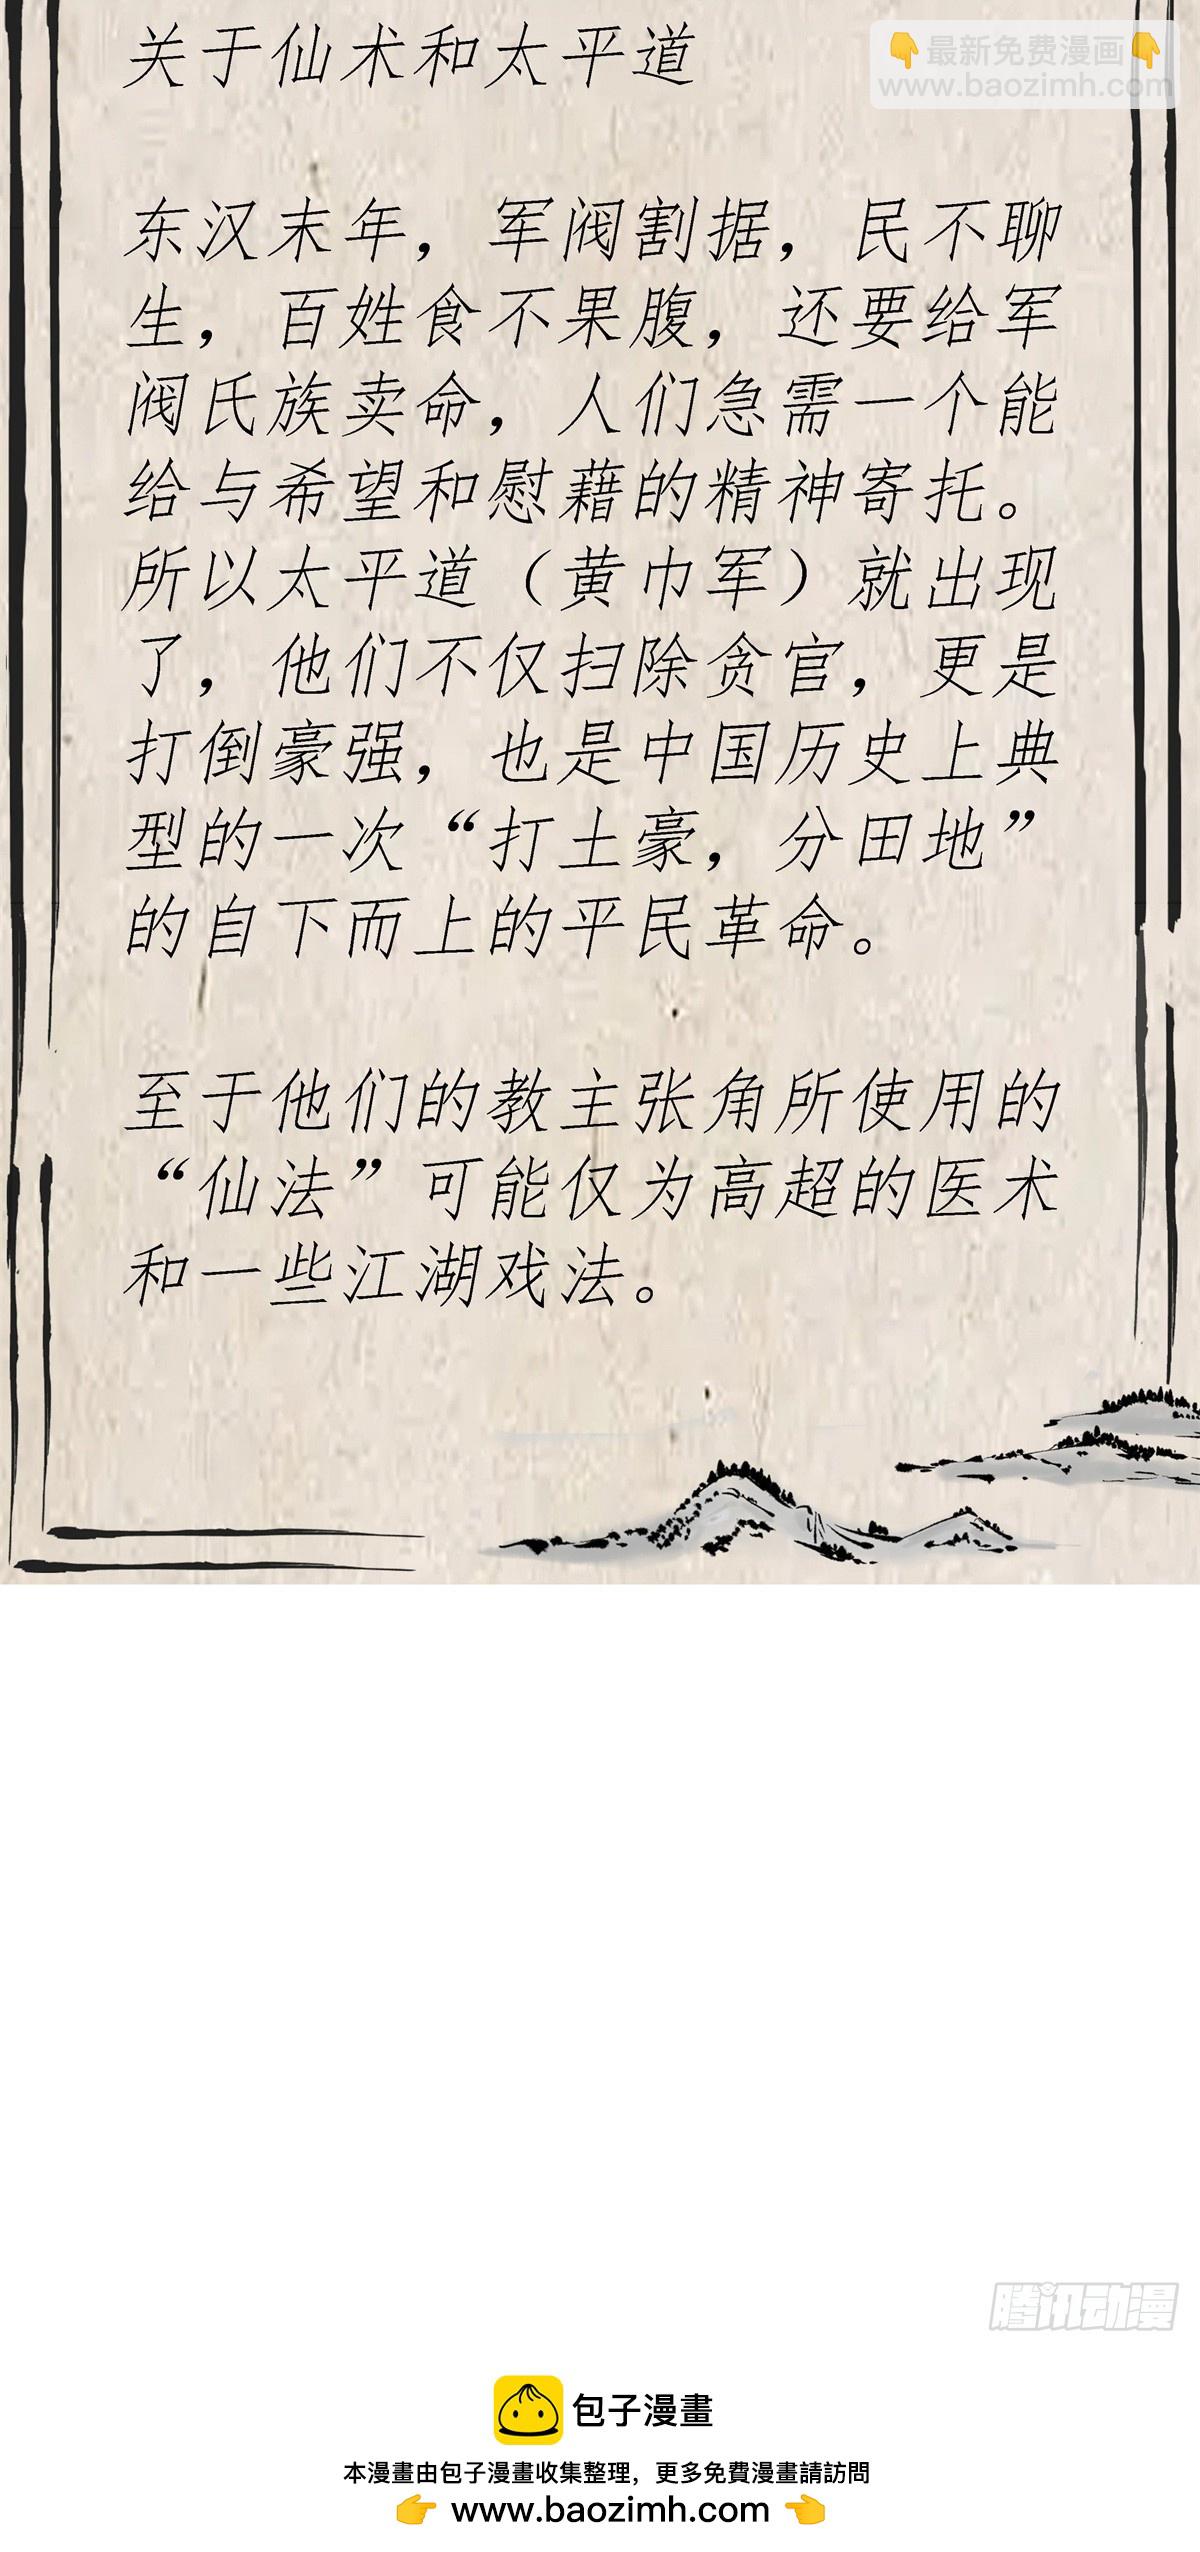 关于仙术和太平道
👇最新免费漫画👇
www.baozimh.com
东汉末年，军阀割据，民不聊
生，百姓食不果腹，还要给军
阀氏族卖命，人们急需一个能
给与希望和慰藉的精神寄托。
所以太平道（黄巾军）就出现
了，他们不仅扫除贪官，更是
打倒豪强，也是中国历史上典
型的一次“打土豪，分田地”
的自下而上的平民革命。
至于他们的教主张角所使用的
“仙法”可能仅为高超的医术
和一些江湖戏法。
腾讯动漫
包子漫畫
本漫畫由包子漫畫收集整理，更多免費漫畫請訪問
👉 www.baozimh.com 👈